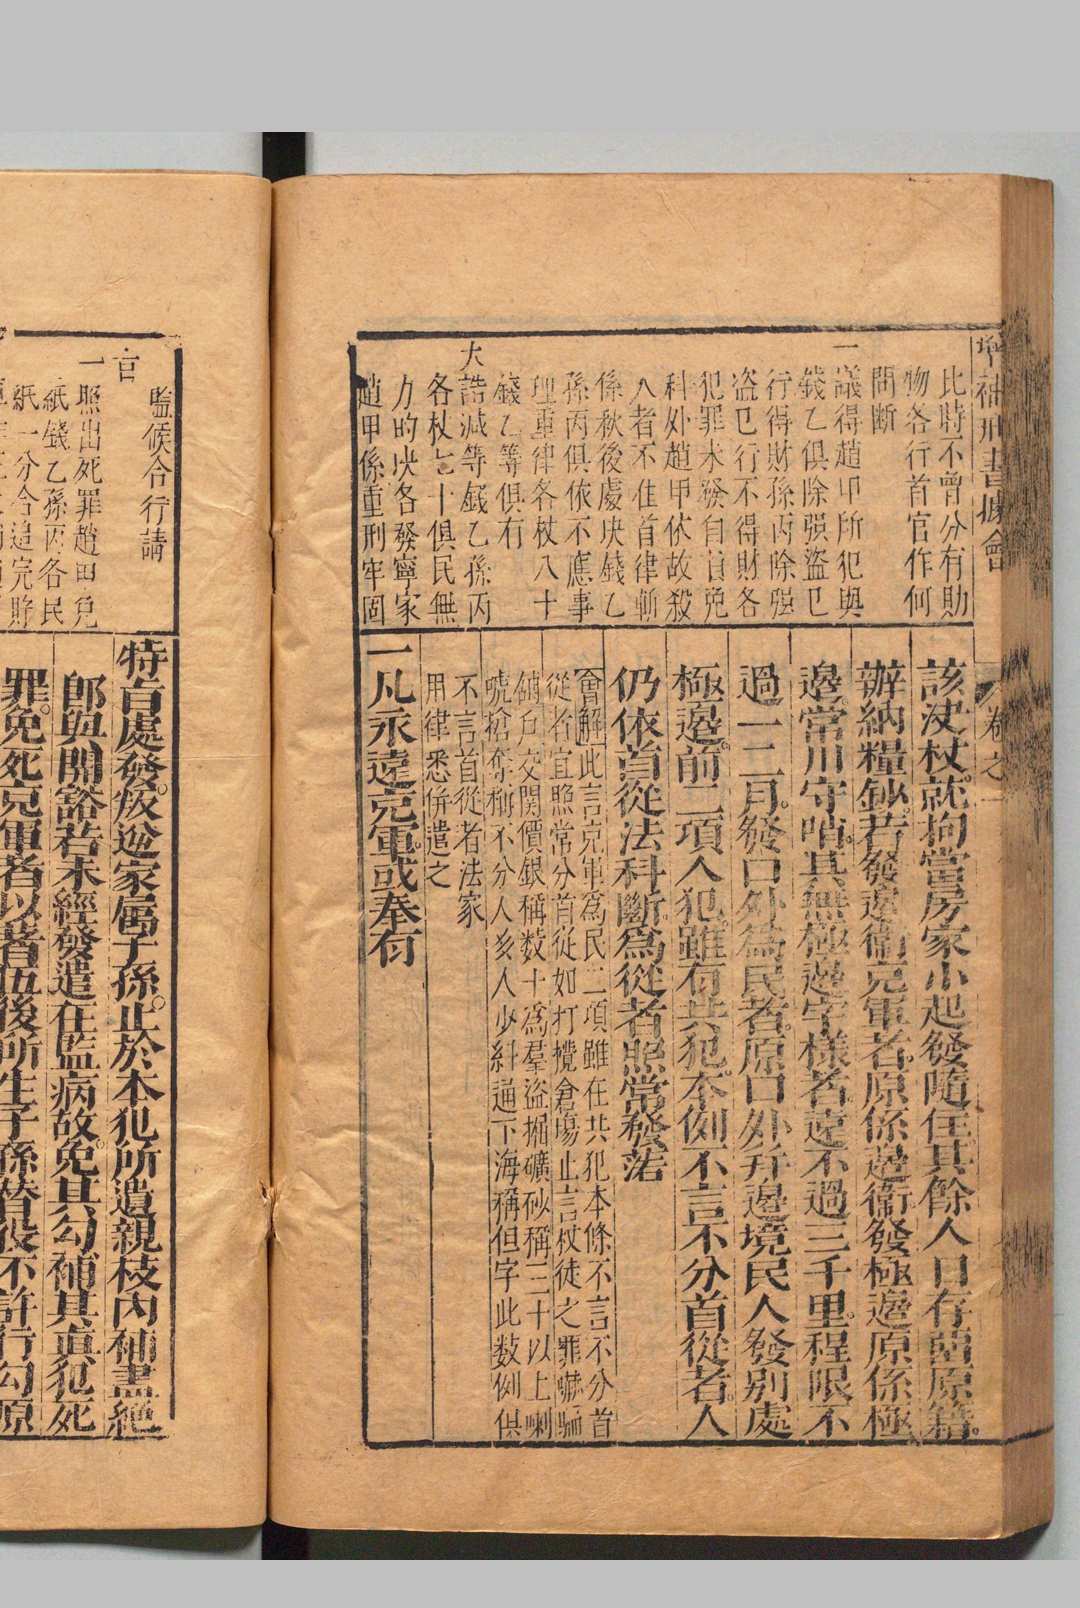 增補刑書據會
卷之一
比時不曾分有助
物各行首官作何
問斷
一議得趙甲所犯與
錢乙俱除強盜已
行得財孫丙除強
盜已行不得財各
犯罪未發自首免
科外趙甲依故殺
人者不准首律斬
係秋後處决錢乙
孫丙俱依不應事
理重律各杖八十
錢乙等俱有
大誥減等錢乙孫丙
各杖七十俱民無
力的决各發寧家
趙甲係重刑牢固
該決杖就拘當房家小起發隨住其餘人口存留原籍
辦納糧鈔若發邊衛充軍者原係邊衛發極邊原係極
邊常川守哨其無極邊字樣者遠不過三千里程限不
過一二月發口外為民者原口外并邊境民人發別處
極邊前二項人犯雖有共犯本例不言不分首從者人
仍依首從法科斷為從者照常發落
會解此言充軍為民二項雖在共犯本條不言不分首
從者宜照常分首從如打攪倉場止言杖徒之罪嚇騙
舖戶交關價銀稱数十為羣盜掘礦砂稱三十以上喇
唬搶奪稱不分人亥人少糾通下海稱但字此数例俱
不言首從者法家
用律悉併遣之
一凡永遠充軍或奉有
監候合行請
旨
一照出死罪趙甲免
紙錢乙孫丙各民
紙一分合追完貯
特旨處發叛逆家屬子孫止於本犯所遺親枝內補盡絕
即與開豁若未經發遣在監病故免其勾補其真犯死
罪免死充軍者以著伍後所生子孫替役不許行勾原